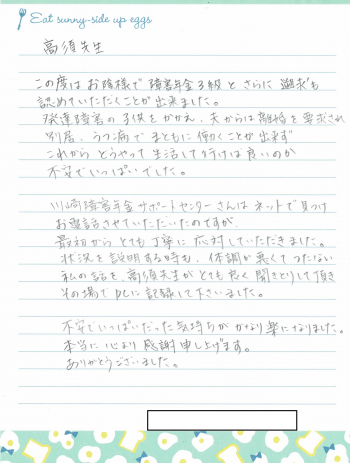 Eat sunny-side up eggs
高須先生
この度はお陰様で障害年金3級とさらに遡求も
認めていただくことが出来ました。
発達障害の子供をかかえ、夫からは離婚を要求され
別居、うつ病でまともに働くことが出来ず
これからどうやって生活して行けば良いのか
不安でいっぱいでした。
川崎障害年金サポートセンターさんはネットで見つけ
お電話させていただいたのですが、
最初からとても丁寧に応対していただきました。
状況を説明する時も、体調が悪くてつたない
私の話を、高須先生がとても良く聞きとりして頂き
その場でPCに記録して下さいました。
不安でいっぱいだった気持ちがかなり楽になりました。
本当に心より感謝申し上げます。
ありがとうございました。